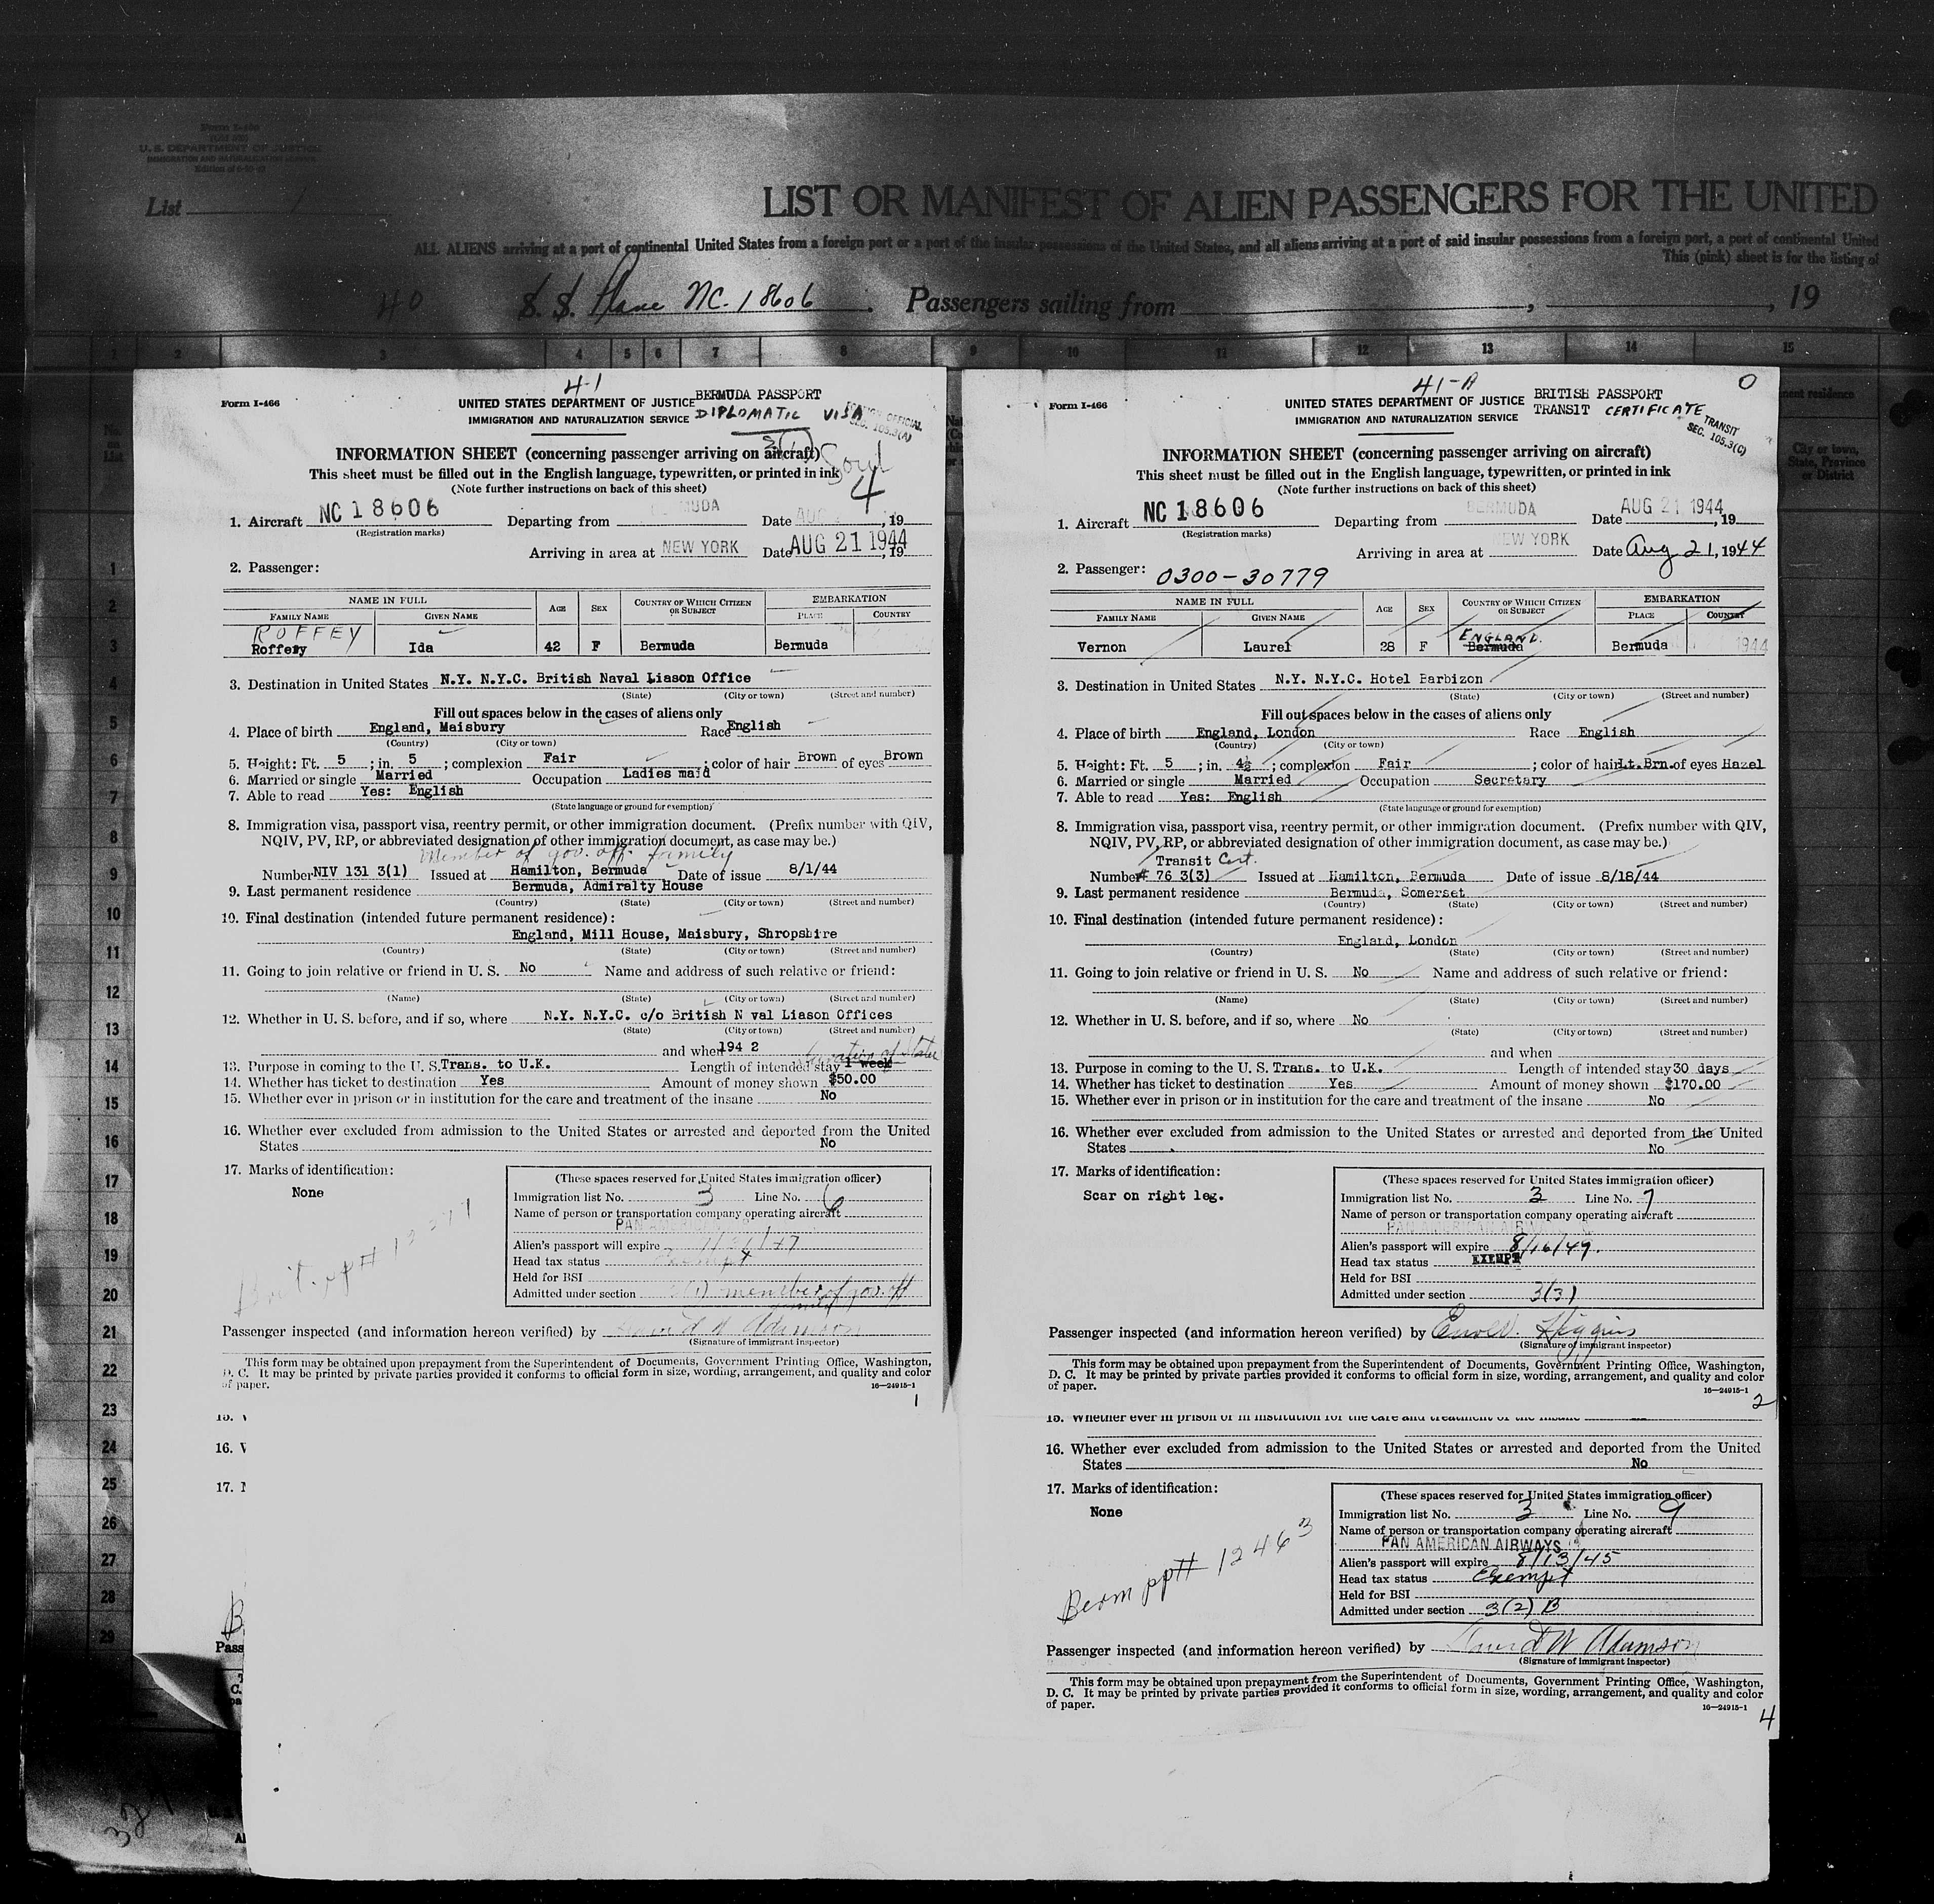 Form I-466
U. S. DEPARTMENT OF JUSTICE
IMMIGRATION AND NATURALIZATION SERVICE
List 1
LIST OR MANIFEST OF ALIEN PASSENGERS FOR THE UNITED
ALL ALIENS arriving at a port of continental United States from a foreign port or a port of the insular possessions of the United States, and all aliens arriving at a port of said insular possessions from a foreign port, a port of continental United
This (pink) sheet is for the listing of
40 S. S. Plane NC. 18606. Passengers sailing from , , 19
1 2 3 4 5 6 7 8 9 10 11 12 13 14 15
41
Form I-466
UNITED STATES DEPARTMENT OF JUSTICE BERMUDA PASSPORT
IMMIGRATION AND NATURALIZATION SERVICE DIPLOMATIC VISA
OFFICIAL
SEC. 105.3(A)
3(1)
INFORMATION SHEET (concerning passenger arriving on aircraft)
This sheet must be filled out in the English language, typewritten, or printed in ink
(Note further instructions on back of this sheet)
4
1. Aircraft NC 18606 Departing from MUDA Date AUG , 19
(Registration marks)
Arriving in area at NEW YORK Date AUG 21 1944, 19
2. Passenger:
NAME IN FULL AGE SEX COUNTRY OF WHICH CITIZEN OR SUBJECT EMBARKATION
FAMILY NAME GIVEN NAME PLACE COUNTRY
ROFFEY
Ida 42 F Bermuda Bermuda
3. Destination in United States N.Y. N.Y.C. British Naval Liason Office
(State) (City or town) (Street and number)
Fill out spaces below in the cases of aliens only
4. Place of birth England, Maisbury Race English
(Country) (City or town)
5. Height: Ft. 5 ; in. 5 ; complexion Fair ; color of hair Brown of eyes Brown
6. Married or single Married Occupation Ladies maid
7. Able to read Yes: English
(State language or ground for exemption)
8. Immigration visa, passport visa, reentry permit, or other immigration document. (Prefix number with QIV,
NQIV, PV, RP, or abbreviated designation of other immigration document, as case may be.)
Member of gov. off. family
Number NIV 131 3(1) Issued at Hamilton, Bermuda Date of issue 8/1/44
9. Last permanent residence Bermuda, Admiralty House
(Country) (State) (City or town) (Street and number)
10. Final destination (intended future permanent residence):
England, Mill House, Maisbury, Shropshire
(Country) (State) (City or town) (Street and number)
11. Going to join relative or friend in U. S. No Name and address of such relative or friend:
(Name) (State) (City or town) (Street and number)
12. Whether in U. S. before, and if so, where N.Y. N.Y.C. c/o British N val Liason Offices
(State) (City or town) (Street and number)
and when 194 2
Duration of Status
13. Purpose in coming to the U. S. Trans. to U.K. Length of intended stay 1 week
14. Whether has ticket to destination Yes Amount of money shown $50.00
15. Whether ever in prison or in institution for the care and treatment of the insane No
16. Whether ever excluded from admission to the United States or arrested and deported from the United
States No
17. Marks of identification:
None
Brit. pp# 12271
(These spaces reserved for United States immigration officer)
Immigration list No. 3 Line No. 6
Name of person or transportation company operating aircraft
PAN AMERICAN
Alien's passport will expire
Head tax status Exempt
Held for BSI
Admitted under section 3(1) member of gov. off
family
Passenger inspected (and information hereon verified) by David W Adamson
(Signature of immigrant inspector)
This form may be obtained upon prepayment from the Superintendent of Documents, Government Printing Office, Washington,
D. C. It may be printed by private parties provided it conforms to official form in size, wording, arrangement, and quality and color
of paper. 16—24915-1
1
41-A
Form I-466
UNITED STATES DEPARTMENT OF JUSTICE BRITISH PASSPORT
IMMIGRATION AND NATURALIZATION SERVICE TRANSIT CERTIFICATE
O
TRANSIT
SEC. 105.3(C)
INFORMATION SHEET (concerning passenger arriving on aircraft)
This sheet must be filled out in the English language, typewritten, or printed in ink
(Note further instructions on back of this sheet)
1. Aircraft NC 18606 Departing from BERMUDA Date AUG 21 1944, 19
(Registration marks)
Arriving in area at NEW YORK Date Aug 21, 1944
2. Passenger: 0300-30779
NAME IN FULL AGE SEX COUNTRY OF WHICH CITIZEN OR SUBJECT EMBARKATION
FAMILY NAME GIVEN NAME PLACE COUNTRY
ENGLAND.
Vernon Laurel 28 F Bermuda Bermuda 1944
3. Destination in United States N.Y. N.Y.C. Hotel Barbizon
(State) (City or town) (Street and number)
Fill out spaces below in the cases of aliens only
4. Place of birth England, London Race English
(Country) (City or town)
5. Height: Ft. 5 ; in. 4½ ; complexion Fair ; color of hair Lt. Brn. of eyes Hazel
6. Married or single Married Occupation Secretary
7. Able to read Yes: English
(State language or ground for exemption)
8. Immigration visa, passport visa, reentry permit, or other immigration document. (Prefix number with QIV,
NQIV, PV, RP, or abbreviated designation of other immigration document, as case may be.)
Transit Cert.
Number # 76 3(3) Issued at Hamilton, Bermuda Date of issue 8/18/44
9. Last permanent residence Bermuda, Somerset
(Country) (State) (City or town) (Street and number)
10. Final destination (intended future permanent residence):
England, London
(Country) (State) (City or town) (Street and number)
11. Going to join relative or friend in U. S. No Name and address of such relative or friend:
(Name) (State) (City or town) (Street and number)
12. Whether in U. S. before, and if so, where No
(State) (City or town) (Street and number)
and when
13. Purpose in coming to the U. S. Trans. to U.K. Length of intended stay 30 days
14. Whether has ticket to destination Yes Amount of money shown $170.00
15. Whether ever in prison or in institution for the care and treatment of the insane No
16. Whether ever excluded from admission to the United States or arrested and deported from the United
States No
17. Marks of identification:
Scar on right leg.
(These spaces reserved for United States immigration officer)
Immigration list No. 3 Line No. 7
Name of person or transportation company operating aircraft
PAN AMERICAN AIRWAYS
Alien's passport will expire 8/16/49.
Head tax status EXEMPT
Held for BSI
Admitted under section 3(3)
Passenger inspected (and information hereon verified) by Higgins
(Signature of immigrant inspector)
This form may be obtained upon prepayment from the Superintendent of Documents, Government Printing Office, Washington,
D. C. It may be printed by private parties provided it conforms to official form in size, wording, arrangement, and quality and color
of paper. 16—24915-1
2
15. Whether ever in prison or in institution for the care and treatment of the insane
16. Whether ever excluded from admission to the United States or arrested and deported from the United
States No
17. Marks of identification:
None
Berm pp# 12463
(These spaces reserved for United States immigration officer)
Immigration list No. 3 Line No. 9
Name of person or transportation company operating aircraft
PAN AMERICAN AIRWAYS
Alien's passport will expire 8/13/45
Head tax status Exempt
Held for BSI
Admitted under section 3(2) B
Passenger inspected (and information hereon verified) by David W Adamson
(Signature of immigrant inspector)
This form may be obtained upon prepayment from the Superintendent of Documents, Government Printing Office, Washington,
D. C. It may be printed by private parties provided it conforms to official form in size, wording, arrangement, and quality and color
of paper. 16—24915-1
4